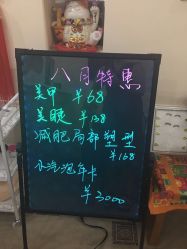 八月特惠
美甲 ¥68
美睫 ¥138
减肥 局部 塑型
¥168
小汽泡年卡
¥3000